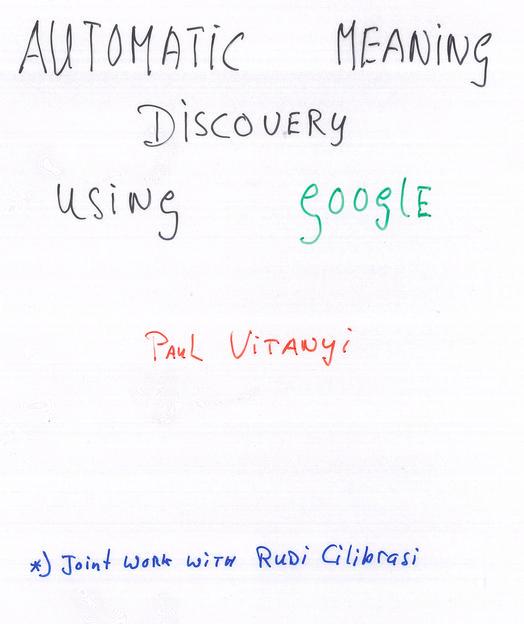 AUTOMATIC MEANING
DISCOVERY
USING googlE
PAUL ViTANYi
*) Joint WORK WiTH RUDi Cilibrasi